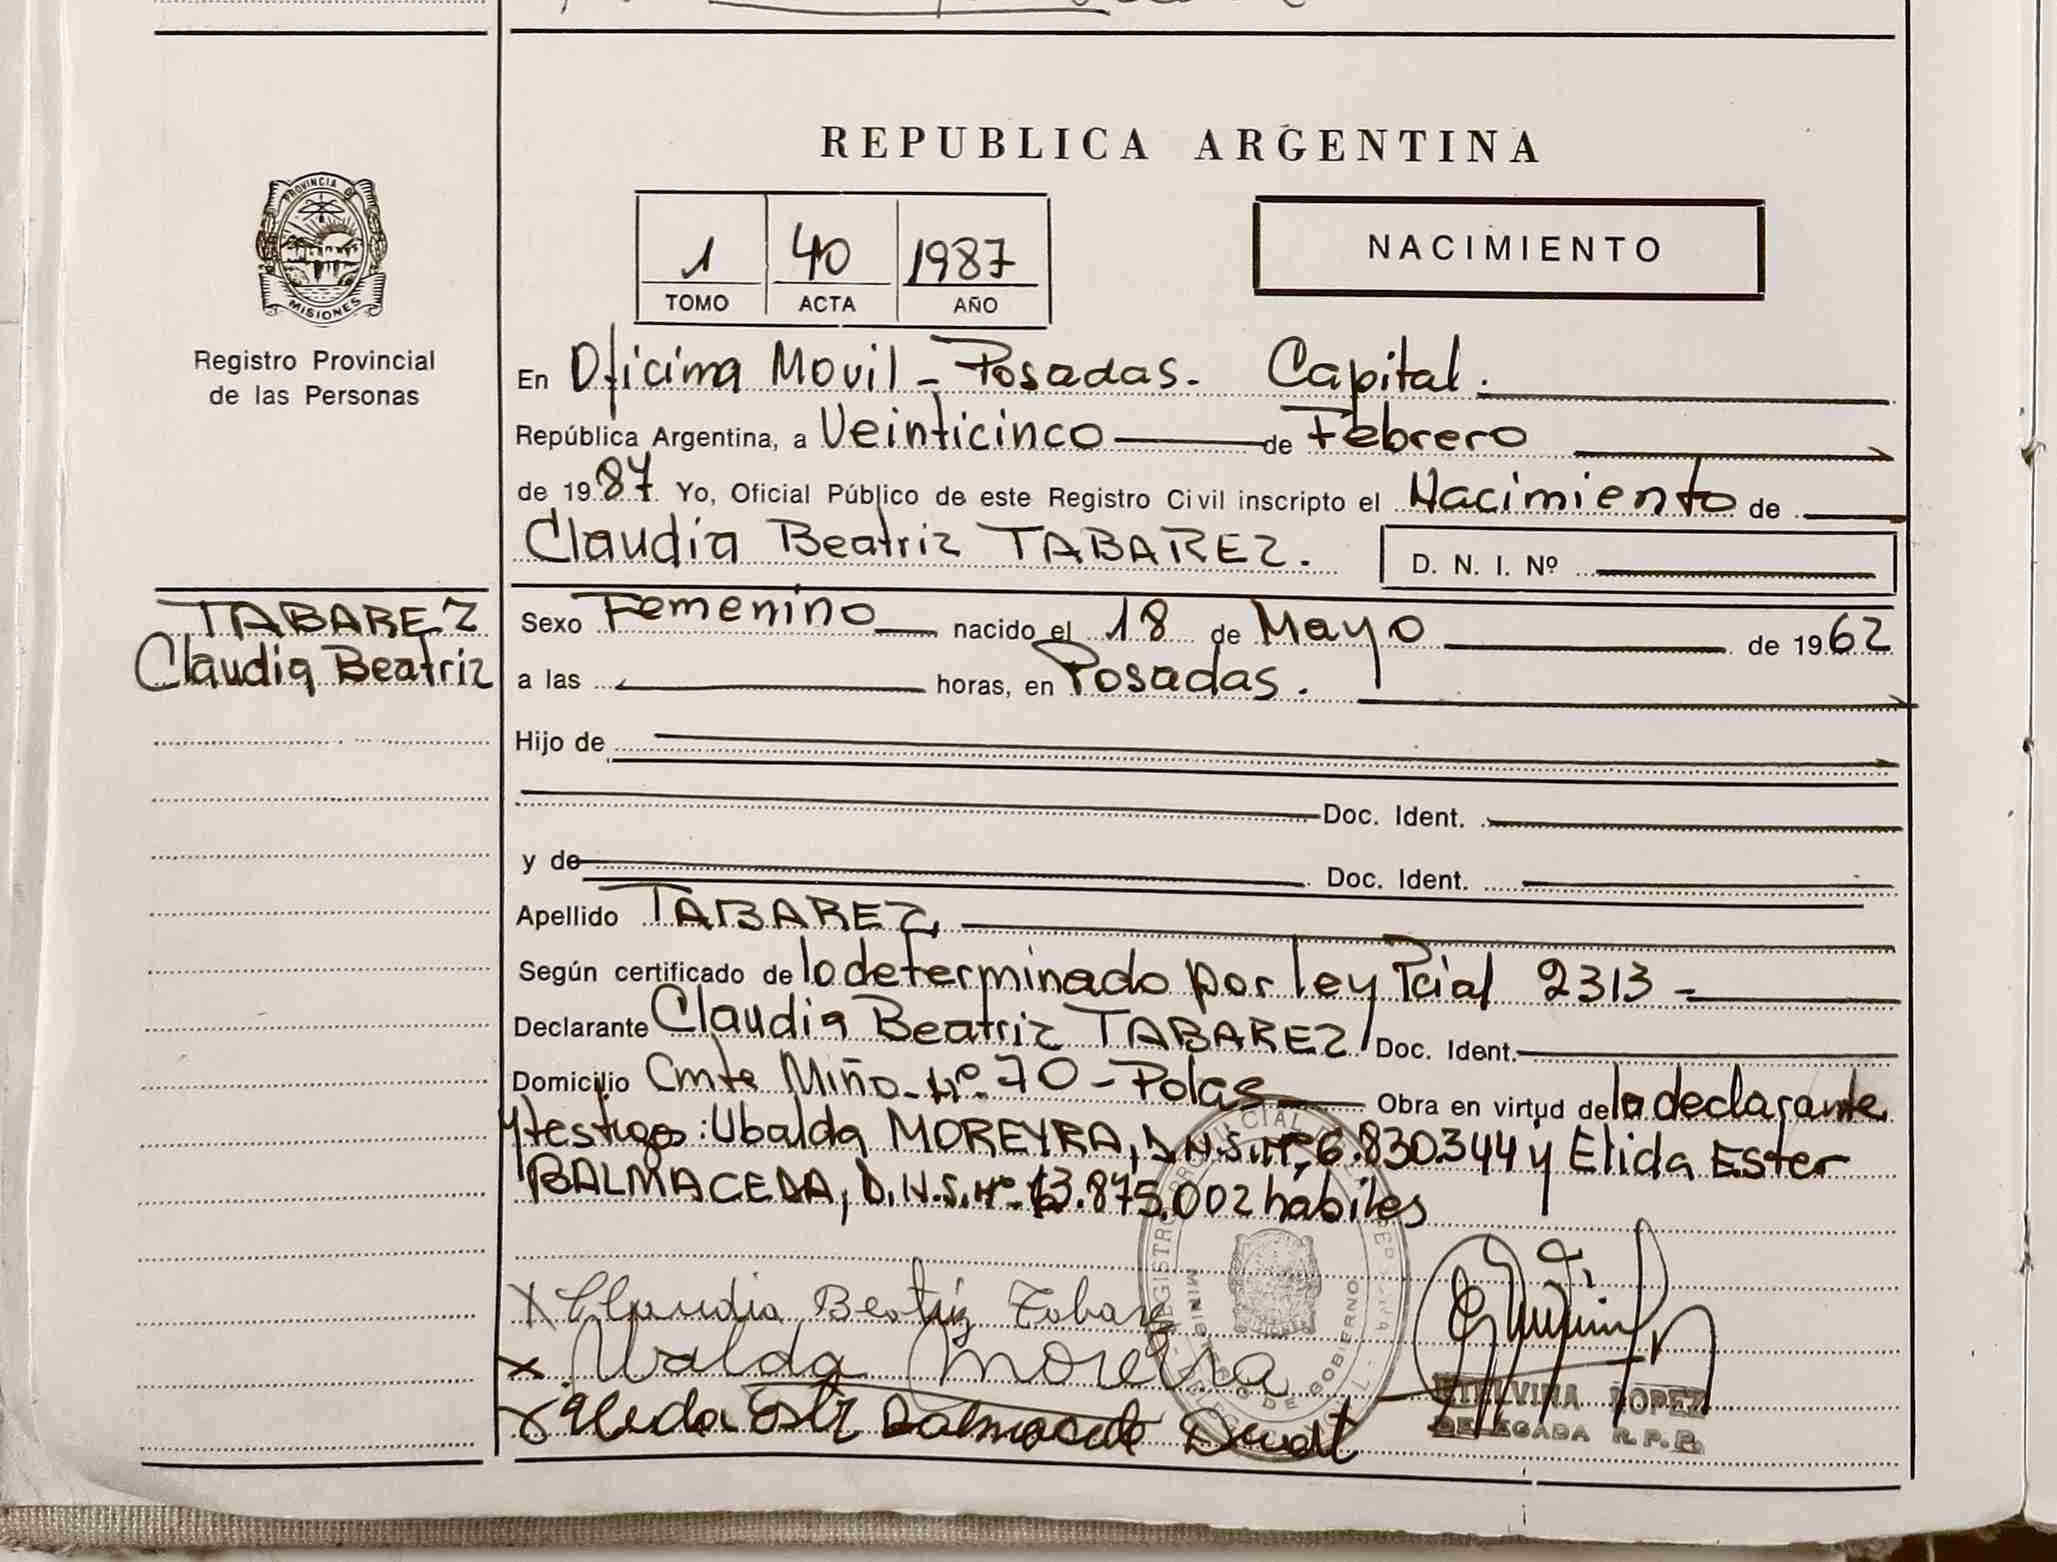 REPUBLICA ARGENTINA
PROVINCIA DE
MISIONES
Registro Provincial
de las Personas
1 40 1987
TOMO ACTA AÑO
NACIMIENTO
En Oficina Movil - Posadas. Capital.
República Argentina, a Veinticinco de Febrero
de 1987 Yo, Oficial Público de este Registro Civil inscripto el Nacimiento de
Claudia Beatriz TABAREZ. D. N. I. Nº
TABAREZ
Claudia Beatriz
Sexo Femenino nacido el 18 de Mayo de 1962
a las horas, en Posadas.
Hijo de
Doc. Ident.
y de Doc. Ident.
Apellido TABAREZ
Según certificado de lo determinado por ley Pcial 2313 -
Declarante Claudia Beatriz TABAREZ Doc. Ident.
Domicilio Cmte Miño - Nº 70 - Pdas Obra en virtud de la declarante
y testigos: Ubalda MOREYRA, D.N.S. Nº 6.830.344 y Elida Ester
BALMACEDA, D.N.S. Nº 13.875.002 hábiles
x Claudia Beatriz Tabarez
x Ubalda Moreira
x Elida Ester Balmaceda
MINISTERIO DE GOBIERNO
ETELVINA LOPEZ
DELEGADA R.P.P.